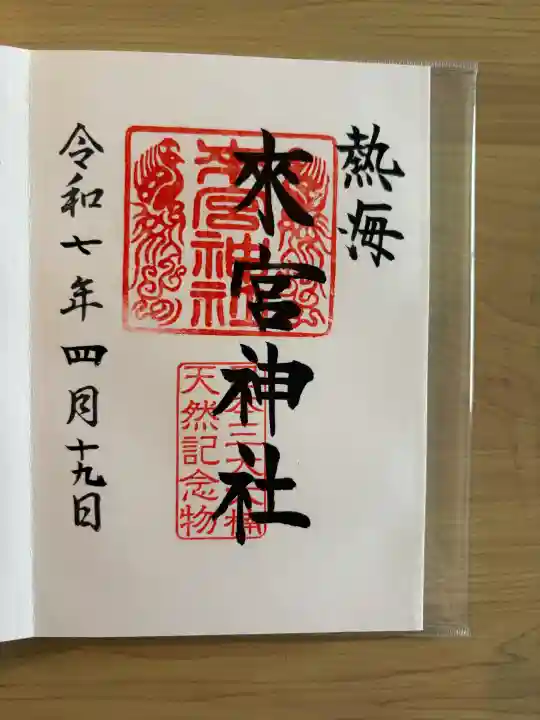 熱海
來宮神社
來宮神社
天然記念物
令和七年四月十九日